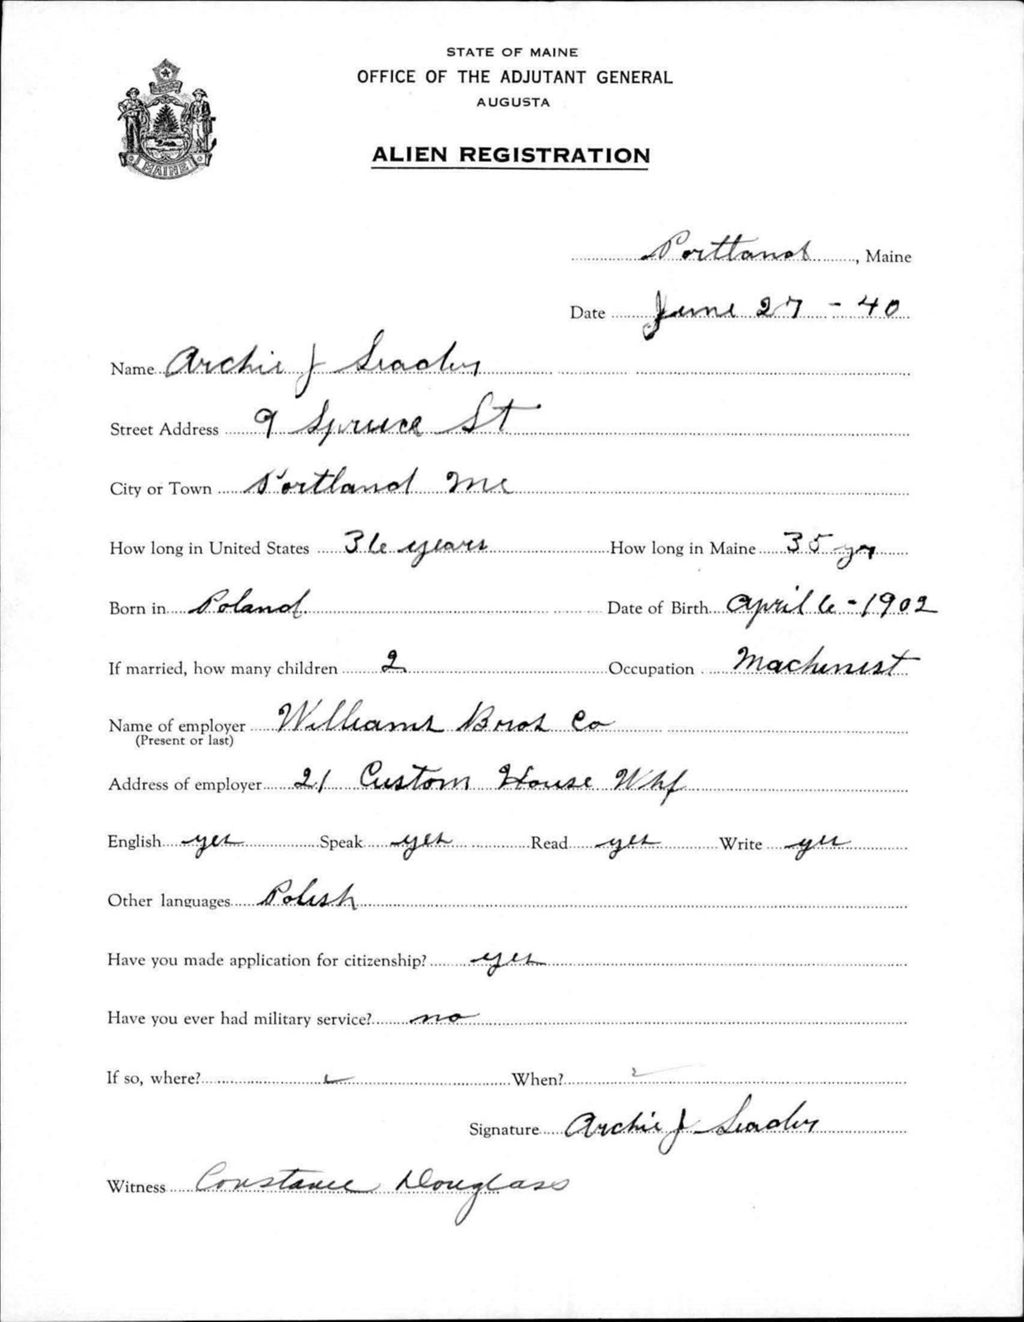 STATE OF MAINE
OFFICE OF THE ADJUTANT GENERAL
AUGUSTA
ALIEN REGISTRATION
MAINE
Portland, Maine
Date June 27 - 40
Name Archie J
Street Address 9 Spruce St
City or Town Portland Me
How long in United States 36 years How long in Maine 35 yr
Born in Poland Date of Birth April 6 - 1902
If married, how many children 2 Occupation Machinist
Name of employer Williams Bros Co
(Present or last)
Address of employer 21 Custom House Whf
English yes Speak yes Read yes Write yes
Other languages Polish
Have you made application for citizenship? yes
Have you ever had military service? no
If so, where? When?
Signature Archie J
Witness Constance Douglass